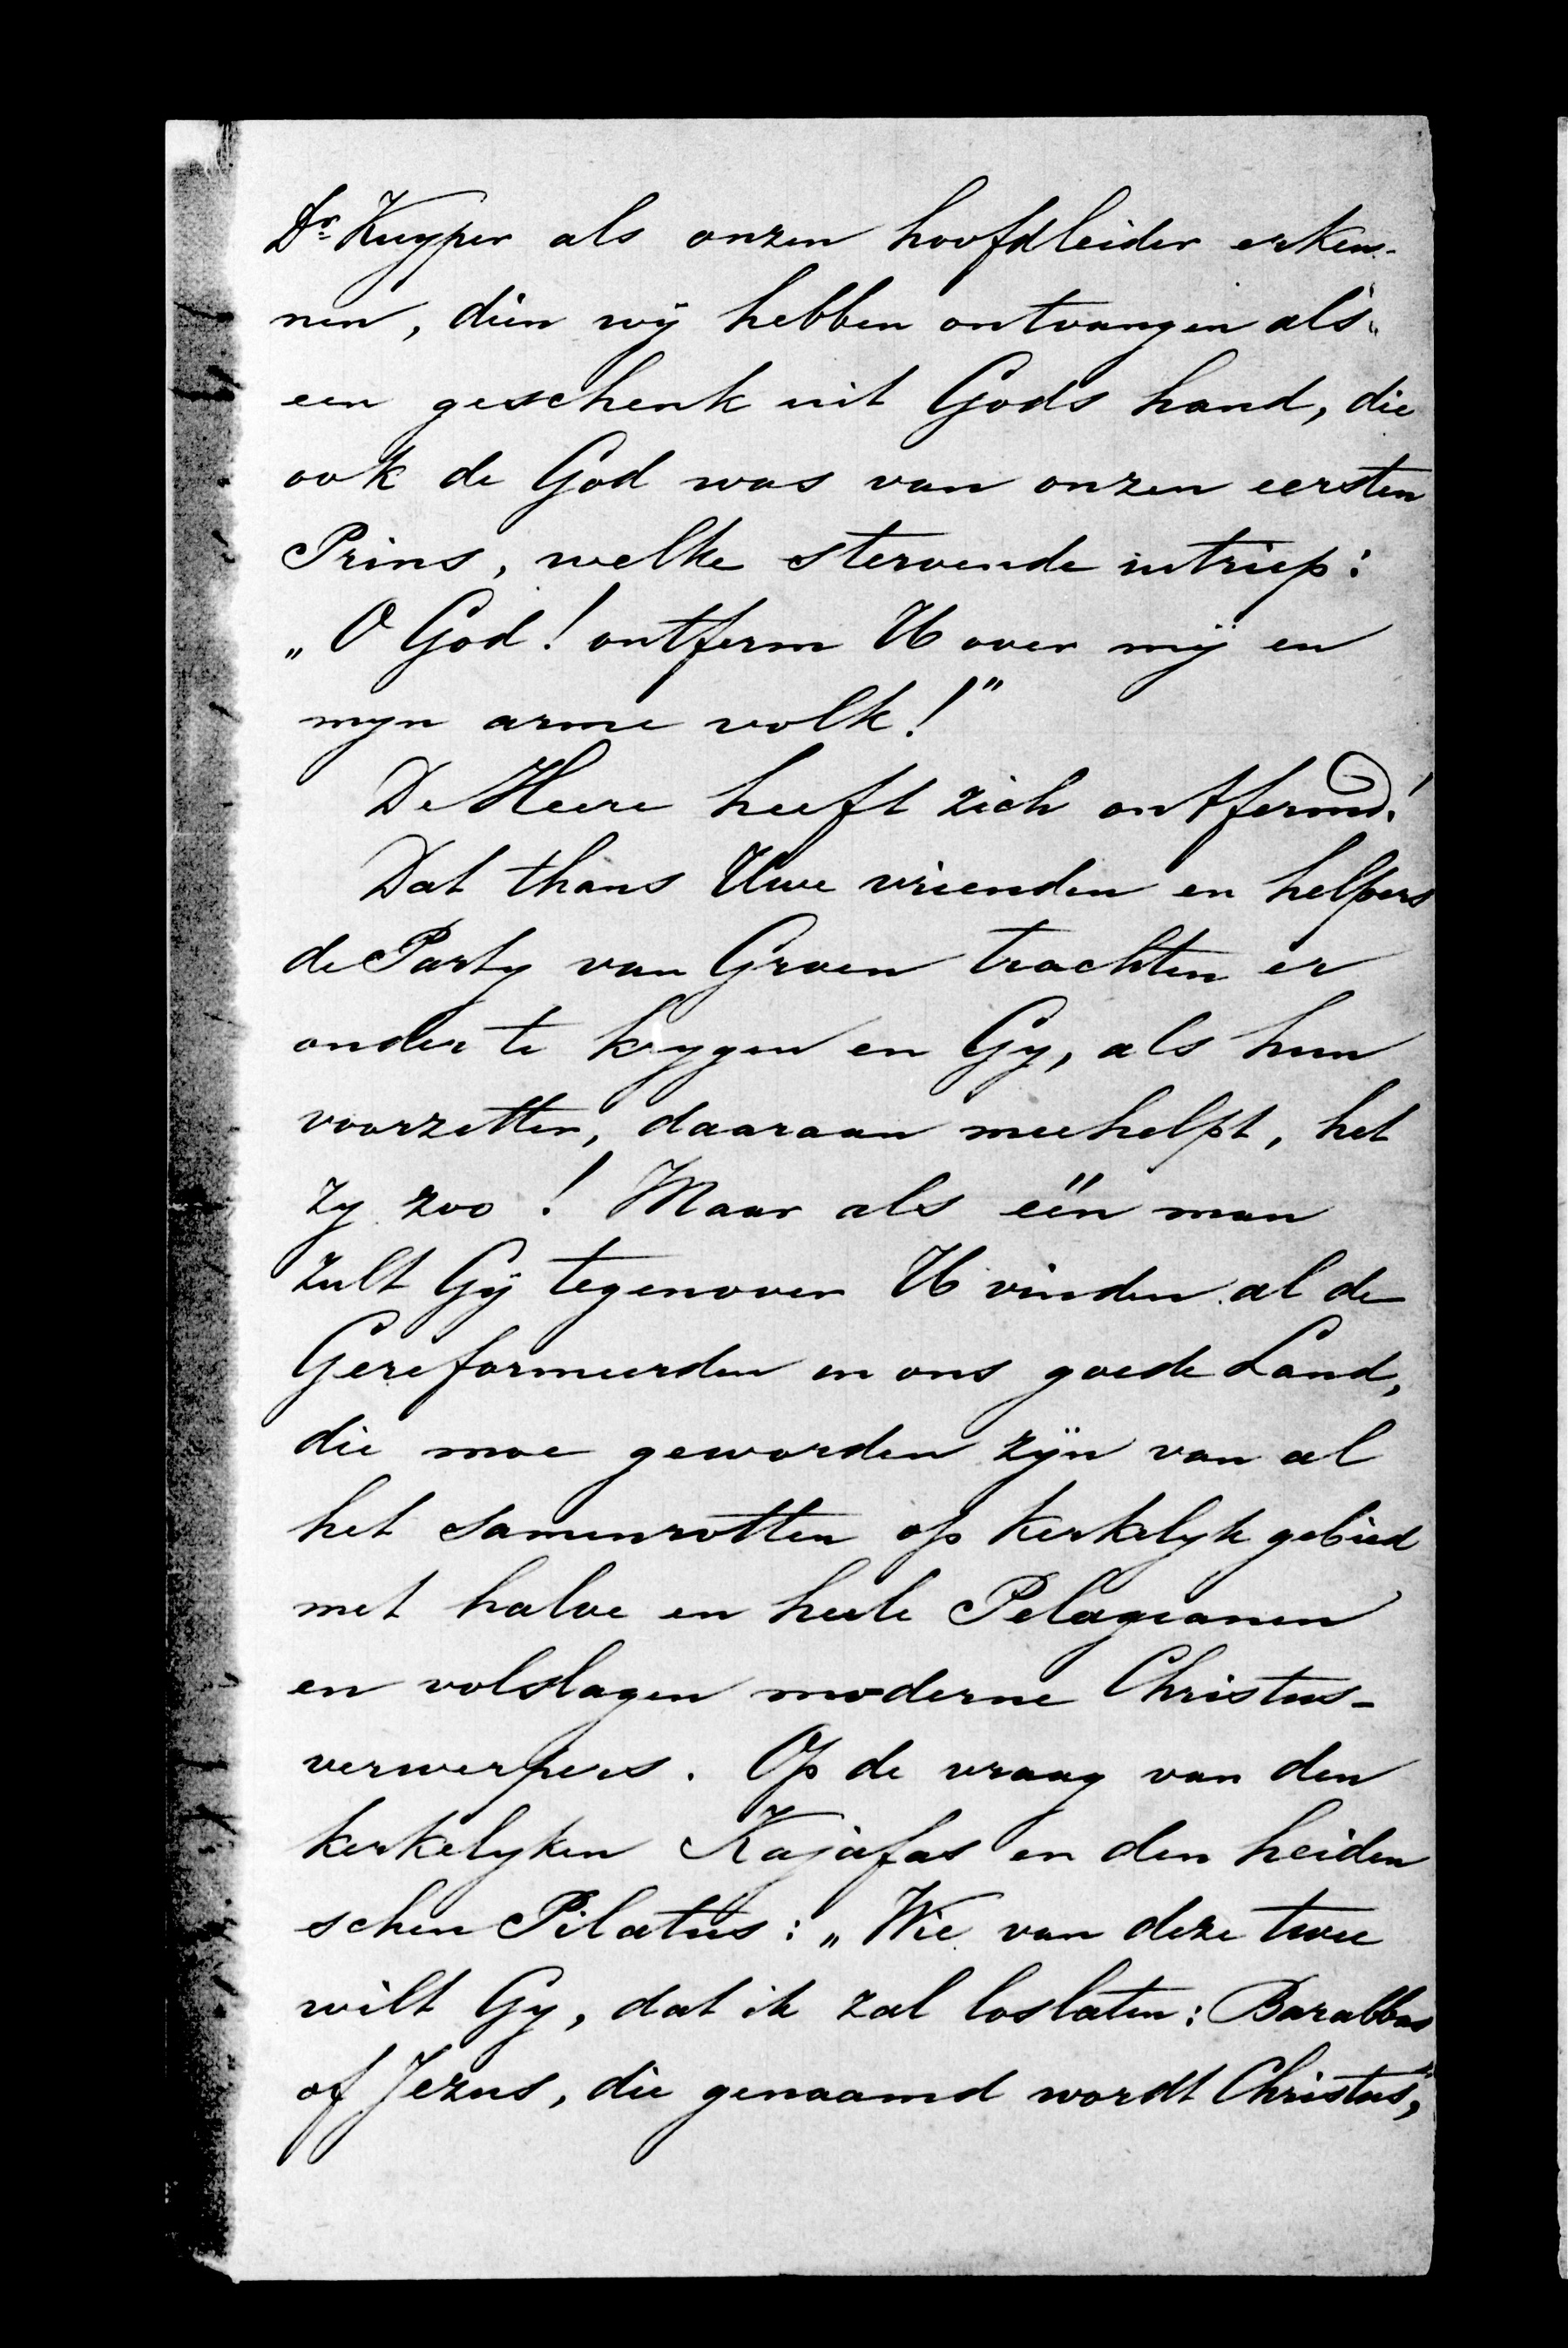 Dr. Kuyper als onzen hoofdleider erken-
nen, dien wij hebben ontvangen als
een geschenk uit Gods hand, die
ook de God was van onzen eersten
Prins, welke stervende uitriep:
„O God! ontferm U over mij en
myn arme volk!”
De Heere heeft zich ontfermd!
Dat thans Uwe vrienden en helpers
de Party van Groen trachten er
onder te krygen en Gy, als hun
voorzetter, daaraan meehelpt, het
zy zoo! Maar als één man
zult Gij tegenover U vinden al de
Gereformeerden in ons goede Land,
die moe geworden zijn van al
het samenrotten op kerkelyk gebied
met halve en heele Pelagianen
en volslagen moderne Christus-
verwerpers. Op de vraag van den
kerkelyken Kajafas en den heiden
schen Pilatus: „Wie van deze twee
wilt Gy, dat ik zal loslaten: Barabbas
of Jezus, die genaamd wordt Christus,”